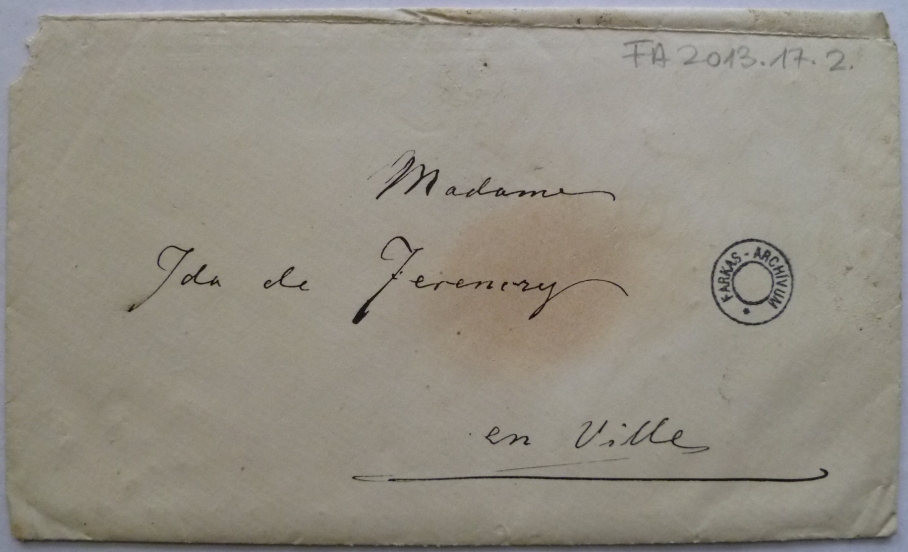 FA 2013.17.2.
Madame
Ida de Ferenczy
FARKAS - ARCHÍVUM *
en Ville